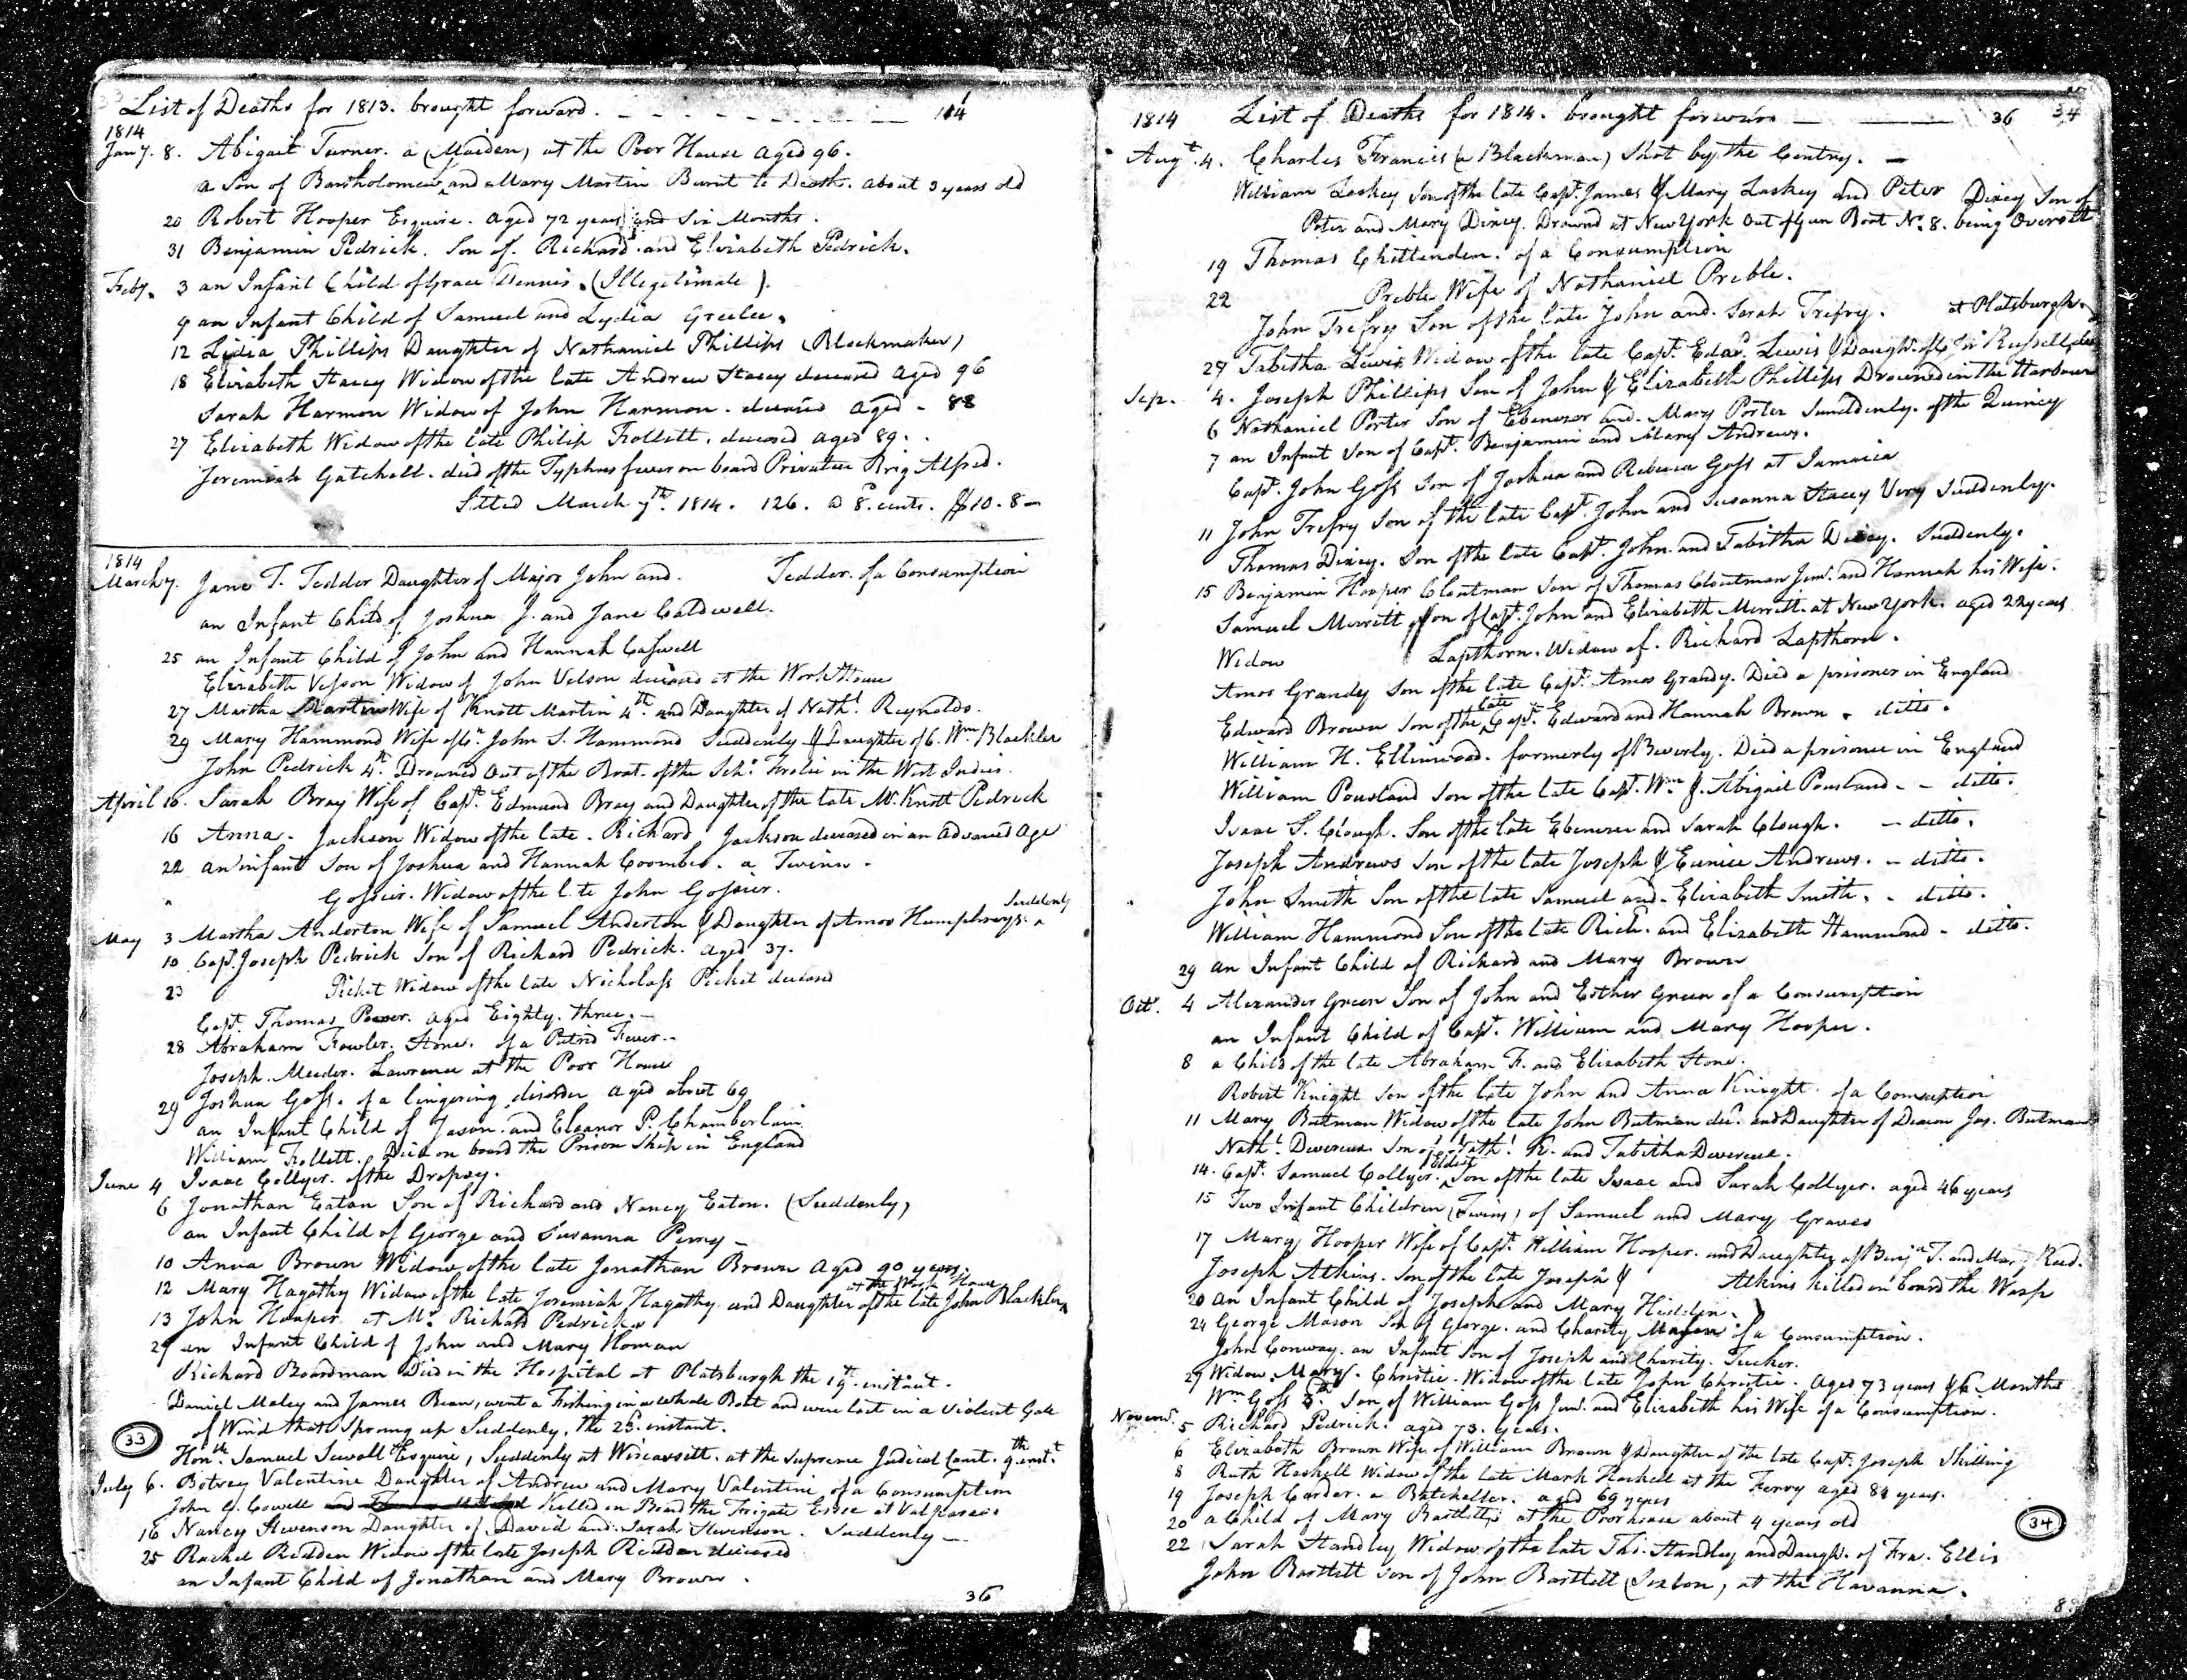 List of Deaths for 1813. brought forward. 114
1814
Jany. 8. Abigail Turner. a (Maiden) at the Poor House aged 96.
a Son of Bartholomew and Mary Martin Burnt to Death. about 3 years old
20 Robert Hooper Esquire. aged 72 years and Six Months.
31 Benjamin Pedrick. Son of. Richard and Elizabeth Pedrick.
Feby. 3 an Infant Child of Grace Dennis. (Illegitimate).
9 an Infant Child of Samuel and Lydia Greeley
12 Lidia Phillips Daughter of Nathaniel Phillips (Blockmaker)
18 Elizabeth Stacey Widow of the late Andrew Stacey deceased aged 96
Sarah Harmon Widow of John Harmon. deceased aged - 88
27 Elizabeth Widow of the late Philip Follett. deceased aged 89.
Jeremiah Gatchell. died of the Typhus fever on board Privateer Brig Alfred.
Settled March 7th. 1814. 126. @ 8 cents. $10.8-
1814
March 7. Jane T. Tedder Daughter of Major John and. Tedder. of a Consumption
an Infant Child of Joshua J. and Jane Caldwell.
25 an Infant Child of John and Hannah Caswell
Elizabeth Velson Widow of John Velson deceased at the Work House
27 Martha Martin Wife of Knott Martin 4th. and Daughter of Nathl. Reynolds.
29 Mary Hammond Wife of Cn. John S. Hammond Suddenly & Daughter of C. Wm. Blackler
John Pedrick 4th. Drowned Out of the Boat. of the Schr. Frolic in the West Indies.
April 10. Sarah Bray Wife of Capt. Edmund Bray and Daughter of the late Mr. Knott Pedrick
16 Anna. Jackson Widow of the late. Richard Jackson deceased in an Advanced Age
22 an infant Son of Joshua and Hannah Coombes. a Twinn.
" Gossier. Widow of the late John Gossier.
Suddenly
May 3 Martha Anderton Wife of Samuel Anderton & Daughter of Amos Humphreys.
10 Capt. Joseph Pedrick Son of Richard Pedrick. aged 37.
23 Picket Widow of the late Nicholass Picket deceased
Capt. Thomas Power. aged Eighty. three.
28 Abraham Fowler. Stone. of a Putrid Fever.
Joseph. Meeder. Lawrence at the Poor House
29 Joshua Goss. of a lingering disorder aged about 69
an Infant Child of Jason. and Eleanor P. Chamberlain
William Follett. Died on board the Prison Ship in England
June 4 Isaac Collyer. of the Dropsey.
6 Jonathan Eaton Son of Richard and Nancy Eaton. (Suddenly)
an Infant Child of George and Susanna Perry
10 Anna Brown Widow of the late Jonathan Brown aged 90 years.
at the Work House
12 Mary Hagathy Widow of the late Jeremiah Hagathy and Daughter of the late John Blackler
13 John Hooper at Mr. Richard Pedricks
29 an Infant Child of John and Mary Homan
Richard Boardman Died in the Hospital at Platsburgh the 19th. instant.
Daniel Maley and James Bean, went a Fishing in a whale Boat and were lost in a Violent Gale
of Wind that Sprung up Suddenly, the 23d. instant.
33
Honble. Samuel Sewall Esquire, Suddenly at Wiscassett. at the Supreme Judicial Court. 9th inst.
July 6. Betsey Valentine Daughter of Andrew and Mary Valentine, of a Consumption
John G. Cowell Killed on Board the Frigate Essex at Valparaiso
16 Nancy Stevenson Daughter of David and Sarah Stevenson. Suddenly
25 Rachel Redden Widow of the late Joseph Redden deceased
an Infant Child of Jonathan and Mary Brown.
36
1814 List of Deaths for 1814. brought forward 36 34
Augt. 4. Charles Francis (a Blackman) Shot by the Centry.
William Laskey Son of the late Capt. James & Mary Laskey and Peter Dixey Son of
Peter and Mary Dixey. Drownd at New York Out of Gun Boat No. 8. being Oversett
19 Thomas Chittenden. of a Consumption
22 Preble Wife of Nathaniel Preble.
John Trefry Son of the late John and Sarah Trefry. at Platsburgh.
29 Tabitha Lewis Widow of the late Capt. Edwd. Lewis & Daughr. of Jn Russell
Sep. 4. Joseph Phillips Son of John & Elizabeth Phillips Drowned in the Harbour
6 Nathaniel Porter Son of Ebenezer and Mary Porter Sunddenly. of the Quincy
7 an Infant Son of Capt. Benjamin and Mary Andrews.
Capt. John Goss Son of Joshua and Rebecca Goss at Jamaica
11 John Trefry Son of the late Capt. John and Susanna Stacey Very Suddenly.
Thomas Dixey. Son of the late Capt. John. and Tabitha Dixey. Suddenly.
15 Benjamin Hooper Cloutman Son of Thomas Cloutman Junr. and Hannah his Wife.
Samuel Merritt Son of Capt. John and Elizabeth Merritt. at New York. aged 22 years
Widow Lapthorn. Widow of. Richard Lapthorn.
Amos Grandy Son of the late Capt. Amos Grandy. Died a prisoner in England
Edward Brown Son of the late Capt. Edward and Hannah Brown. ditto.
William H. Ellinwood. formerly of Beverly. Died a prisoner in England
William Pousland Son of the late Capt. Wm. &. Abigail Pousland - - ditto.
Isaac S. Clough. Son of the late Ebenezer and Sarah Clough. - ditto.
Joseph Andrews Son of the late Joseph & Eunice Andrews. - ditto.
John Smith Son of the late Samuel and Elizabeth Smith. - ditto.
William Hammond Son of the late Richd. and Elizabeth Hammond - ditto.
29 an Infant Child of Richard and Mary Brown
Octr. 4 Alexander Green Son of John and Esther Green of a Consumption
an Infant Child of Capt. William and Mary Hooper.
8 a Child of the late Abraham F. and Elizabeth Stone.
Robert Knight Son of the late John and Anna Knight. of a Consumption
11 Mary Butman Widow of the late John Butman decd. and Daughter of Deacon Jos. Butman
Nathl. Devereux. Son of Nathl. R. and Tabitha Devereux.
14. Capt. Samuel Collyer. Eldest Son of the late Isaac and Sarah Collyer. aged 46 years
15 Two Infant Children (Twins) of Samuel and Mary Graves
17 Mary Hooper Wife of Capt. William Hooper. and Daughter of Benja. T. and Mary Reed.
Joseph Atkins. Son of the late Joseph & Atkins killed on board the Wasp
20 an Infant Child of Joseph and Mary Hidden
24 George Mason Son of George. and Charity Mason of a Consumption.
John Conway. an Infant Son of Joseph and Charity. Tucker.
29 Widow Mary. Christie. Widow of the late John Christie. Aged 73 years & 6 Months
Wm. Goss 3d. Son of William Goss Junr. and Elizabeth his Wife of a Consumption.
Novemr. 5 Richard Pedrick. aged 73. years.
6 Elizabeth Brown Wife of William Brown & Daughter of the late Capt. Joseph Skilling
8 Ruth Haskell Widow of the late Mark Haskell at the Ferry aged 84 years.
19 Joseph Carder. a Batcheller. aged 69 years
20 a Child of Mary Bartlett's at the Poor house about 4 years old
34
22 Sarah Standley Widow of the late Tho. Standley and Daughr. of Fra. Ellis
John Bartlett Son of John Bartlett (Sexton) at the Havanna.